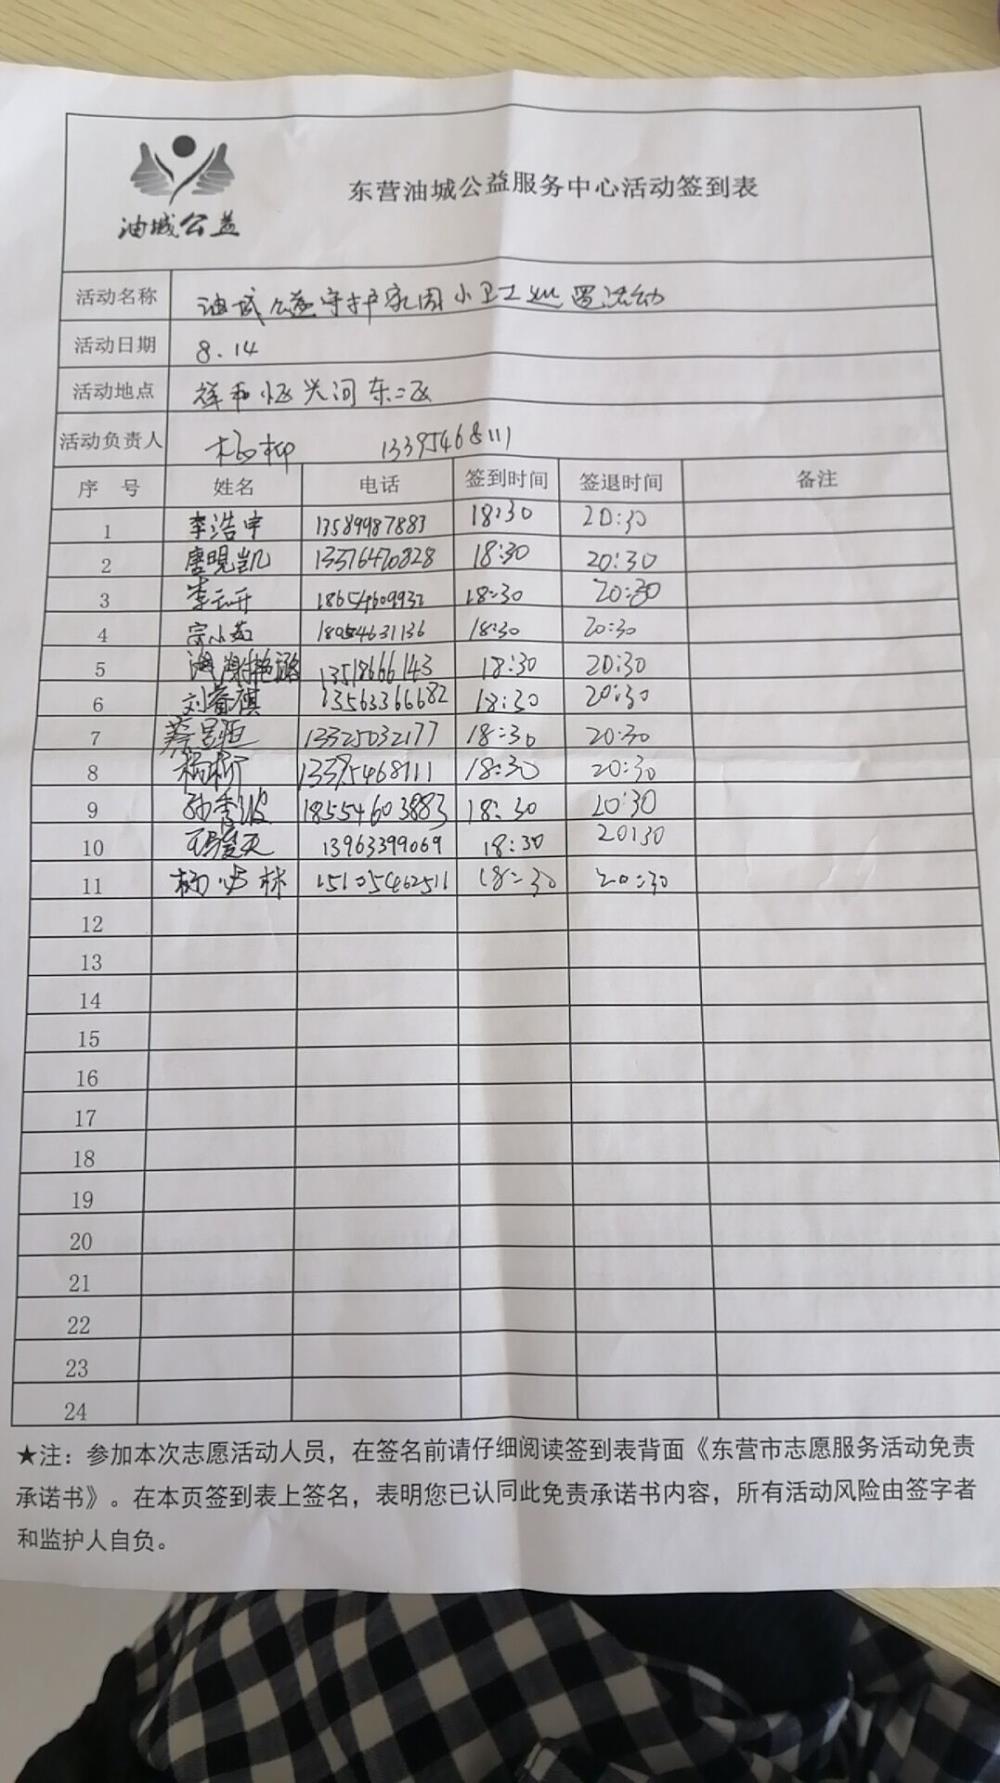 油城公益
东营油城公益服务中心活动签到表
活动名称 油城公益守护家园小卫士 活动
活动日期 8.14
活动地点 祥和恒兴河东二区
活动负责人 杨柳 13395468111
序 号 姓名 电话 签到时间 签退时间 备注
1 李浩申 13589987883 18:30 20:30
2 唐晛凯 13376470828 18:30 20:30
3 李云开 1865460993 18:30 20:30
4 宗小茹 18054631136 18:30 20:30
5 13518666143 18:30 20:30
6 刘睿祺 13563366682 18:30 20:30
7 蔡昱恒 13325032177 18:30 20:30
8 杨柳 13395468111 18:30 20:30
9 孙秀波 18554603883 18:30 20:30
10 13963399069 18:30 20:30
11 杨 林 15105462511 18:30 20:30
12
13
14
15
16
17
18
19
20
21
22
23
24
★注：参加本次志愿活动人员，在签名前请仔细阅读签到表背面《东营市志愿服务活动免责
承诺书》。在本页签到表上签名，表明您已认同此免责承诺书内容，所有活动风险由签字者
和监护人自负。